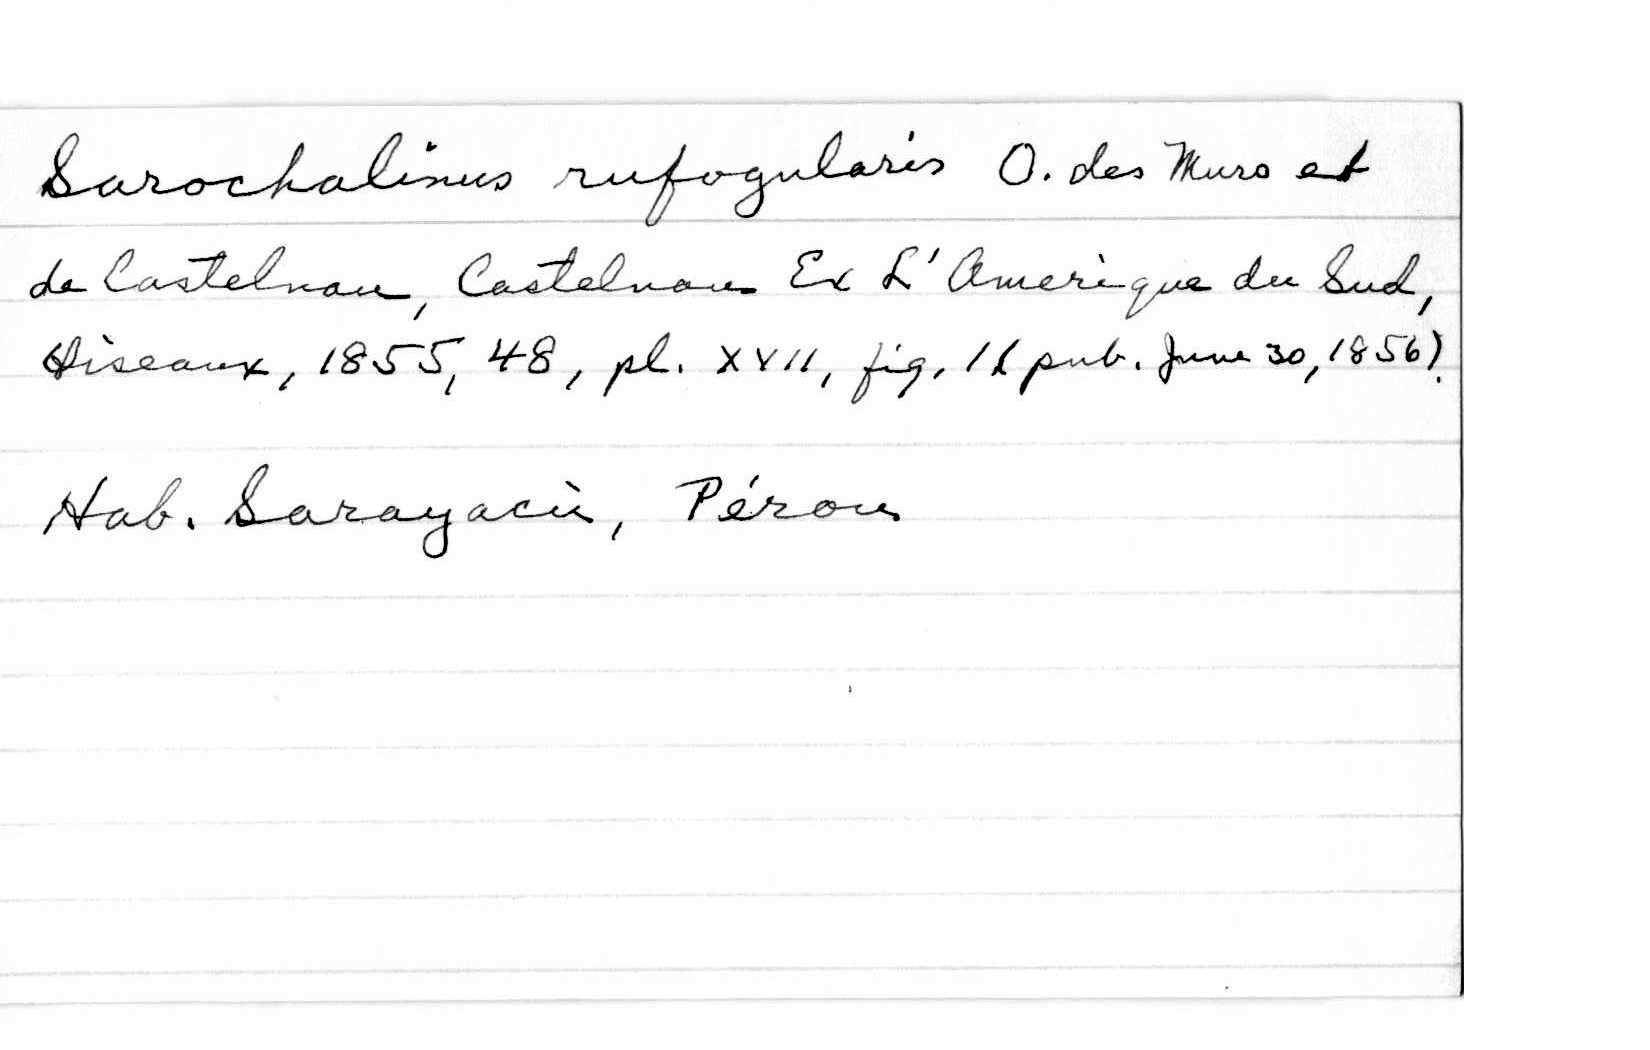 Sarochalinus rufogularis O. des Murs et
de Castelnau, Castelnau Ex L'Amerique du Sud,
Oiseaux, 1855, 48, pl. XVII, fig, 1 (pub. June 30, 1856).
Hab. Sarayacù, Pérou